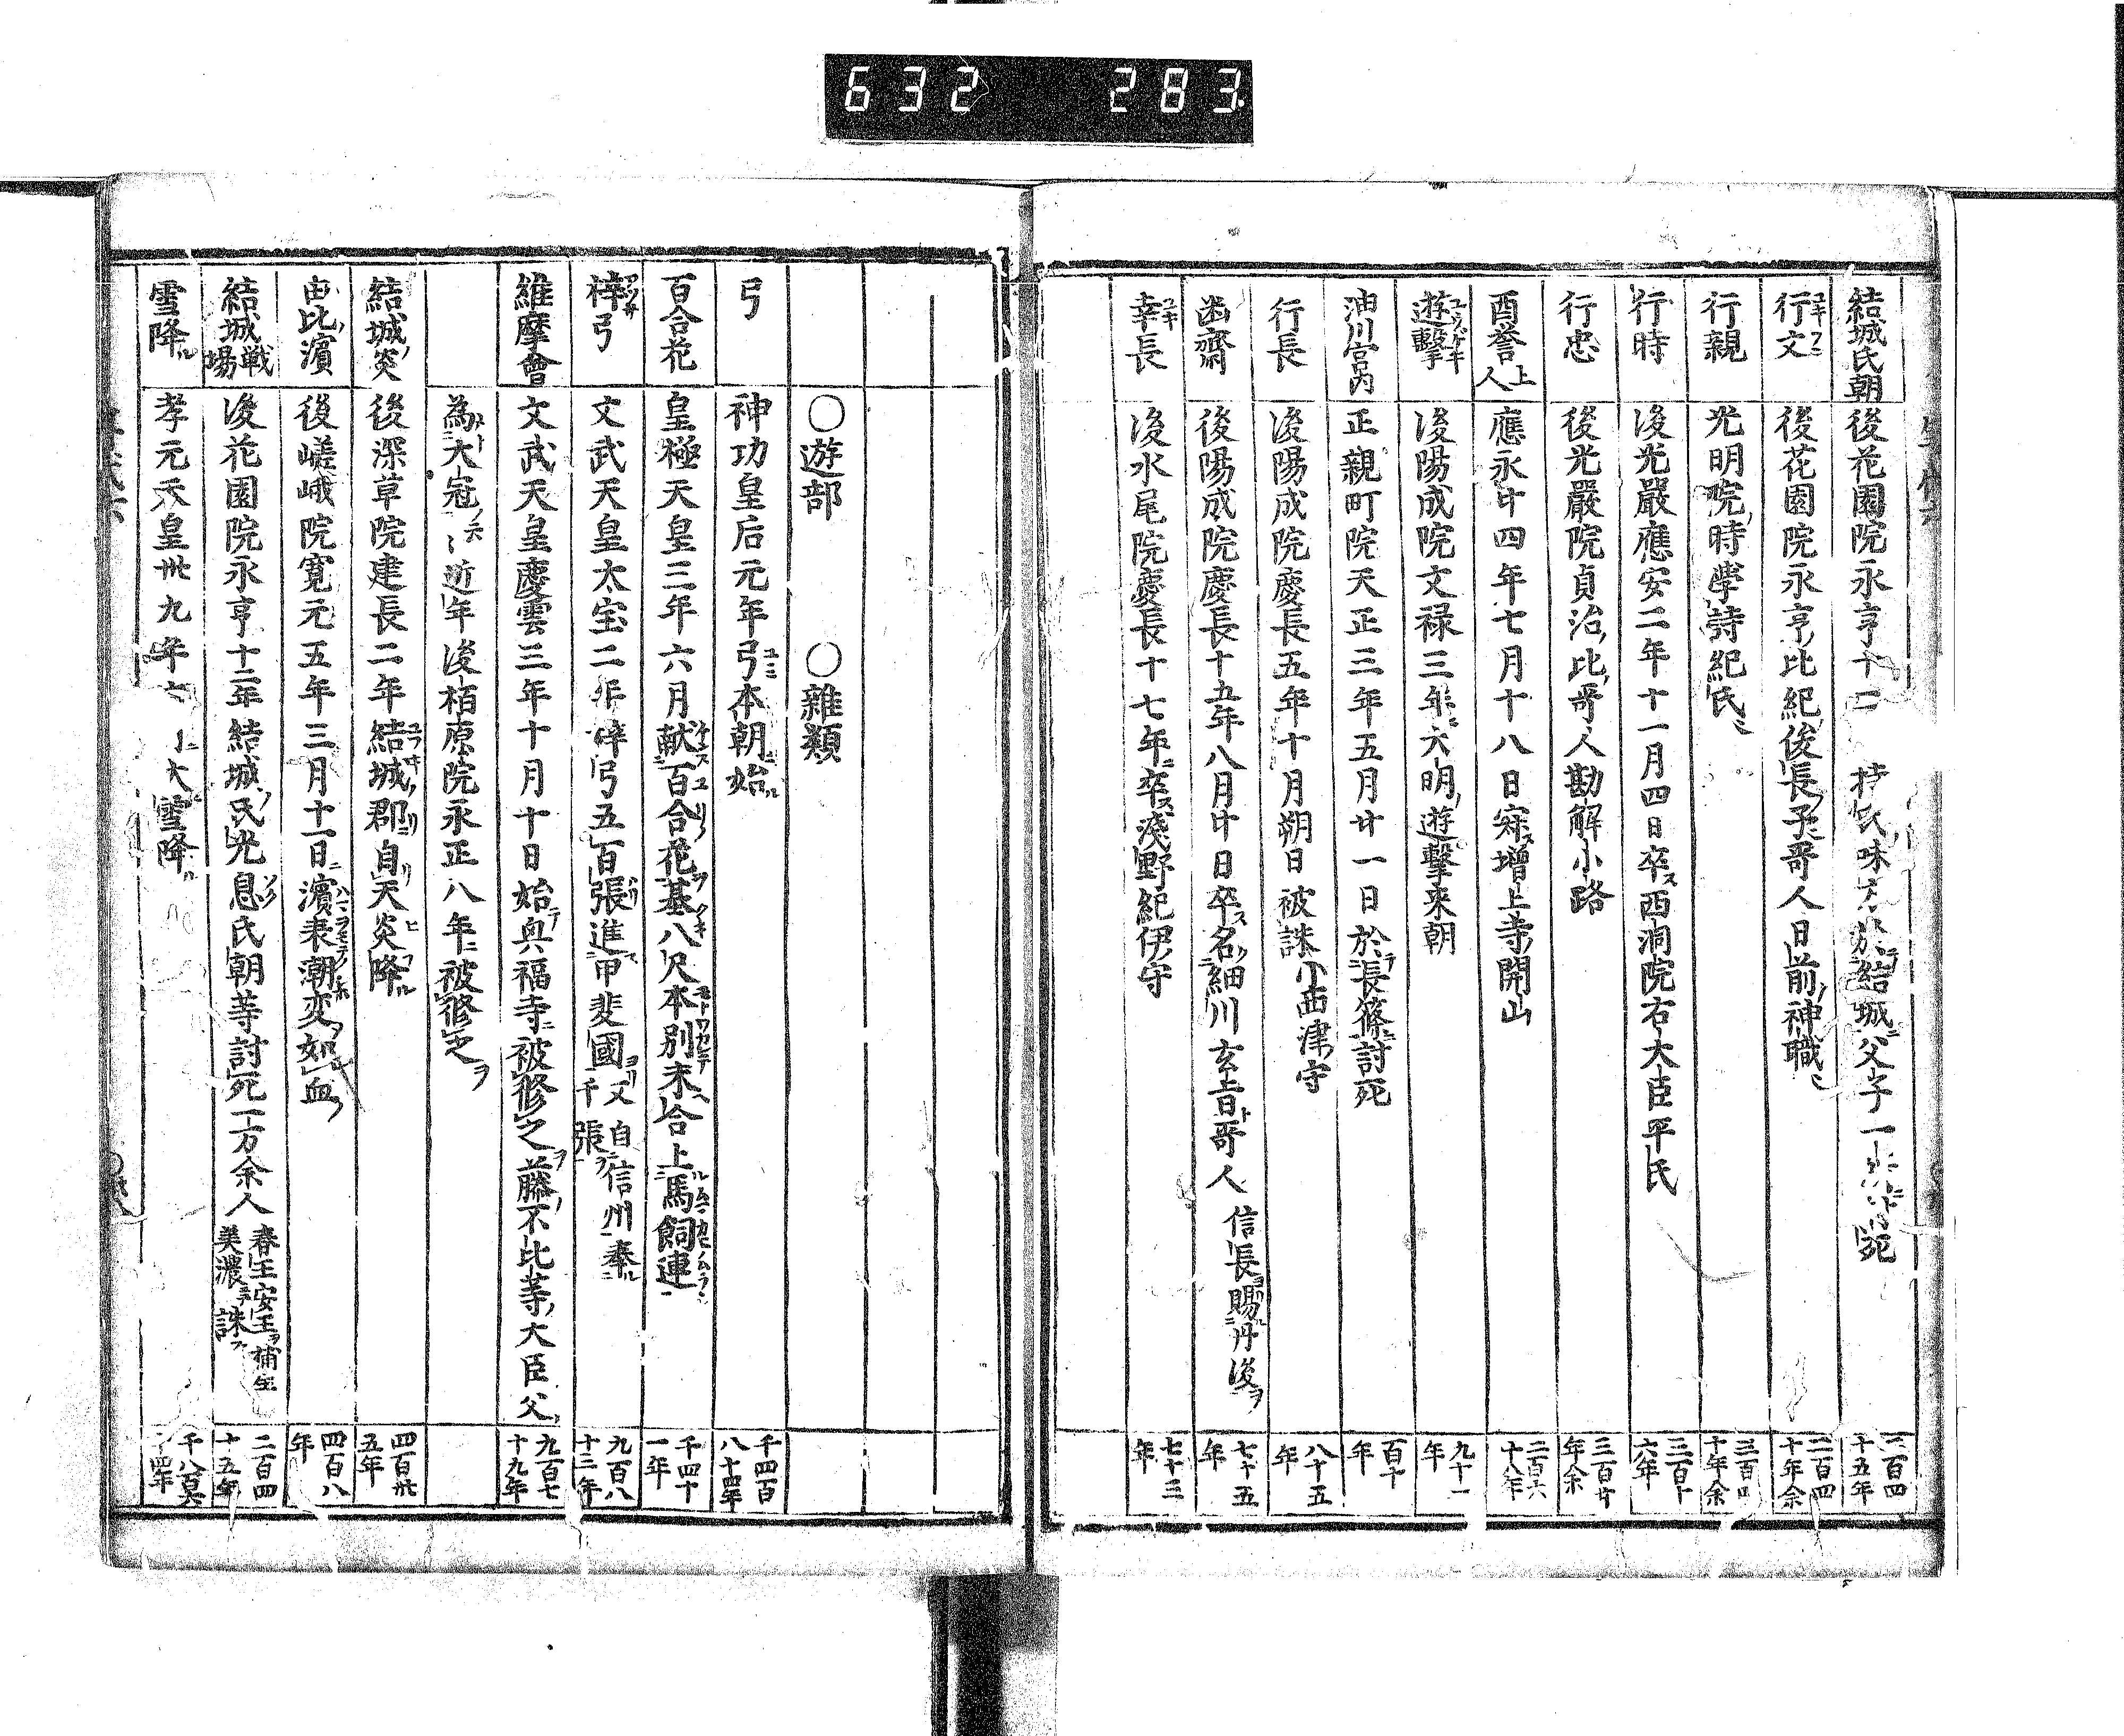 632 283
結城氏朝 後花園院永亨十二 持氏味方於結城父子一 死 二百四十五年
行文 後花園院永亨比紀俊長子哥人日前神職 二百四十年余
行親 光明院時學詩紀氏 三百四十年余
行時 後光嚴應安二年十一月四日卒西洞院右大臣平氏 三百十六年
行忠 後光嚴院貞治比哥人勘解小路 三百廿年余
酉誉上人 應永廿四年七月十八日寂増上寺開山 二百六十八年
遊擊 後陽成院文禄三年六明遊擊来朝 九十一年
油川宮内 正親町院天正三年五月廿一日於長篠討死 百十年
行長 後陽成院慶長五年十月朔日被誅小西津守 八十五年
幽齋 後陽成院慶長十五年八月廿日卒名細川玄旨哥人 信長賜丹後 七十五年
幸長 後水尾院慶長十七年卒淺野紀伊守 七十三年
○遊部 ○雜類
弓 神功皇后元年弓本朝始 千四百八十四年
百合花 皇極天皇三年六月献百合花基八尺本別末合上馬飼連 千四十一年
梓弓 文武天皇太宝二年梓弓五百張進甲斐國又自信州奉千張 九百八十三年
維摩會 文武天皇慶雲三年十月十日始興福寺被修之藤不比等大臣父 九百七十九年
為大冠近年後栢原院永正八年被修之
結城炎 後深草院建長二年結城郡自天炎降 四百卅五年
由比濱 後嵯峨院寛元五年三月十一日濱表潮変如血 四百八年
結城戦場 後花園院永亨十二年結城氏光息氏朝等討死一万余人 春王安王捕生美濃誅 二百四十五年
雪降 孝元天皇卅九年六 大雪降 千八百 四年